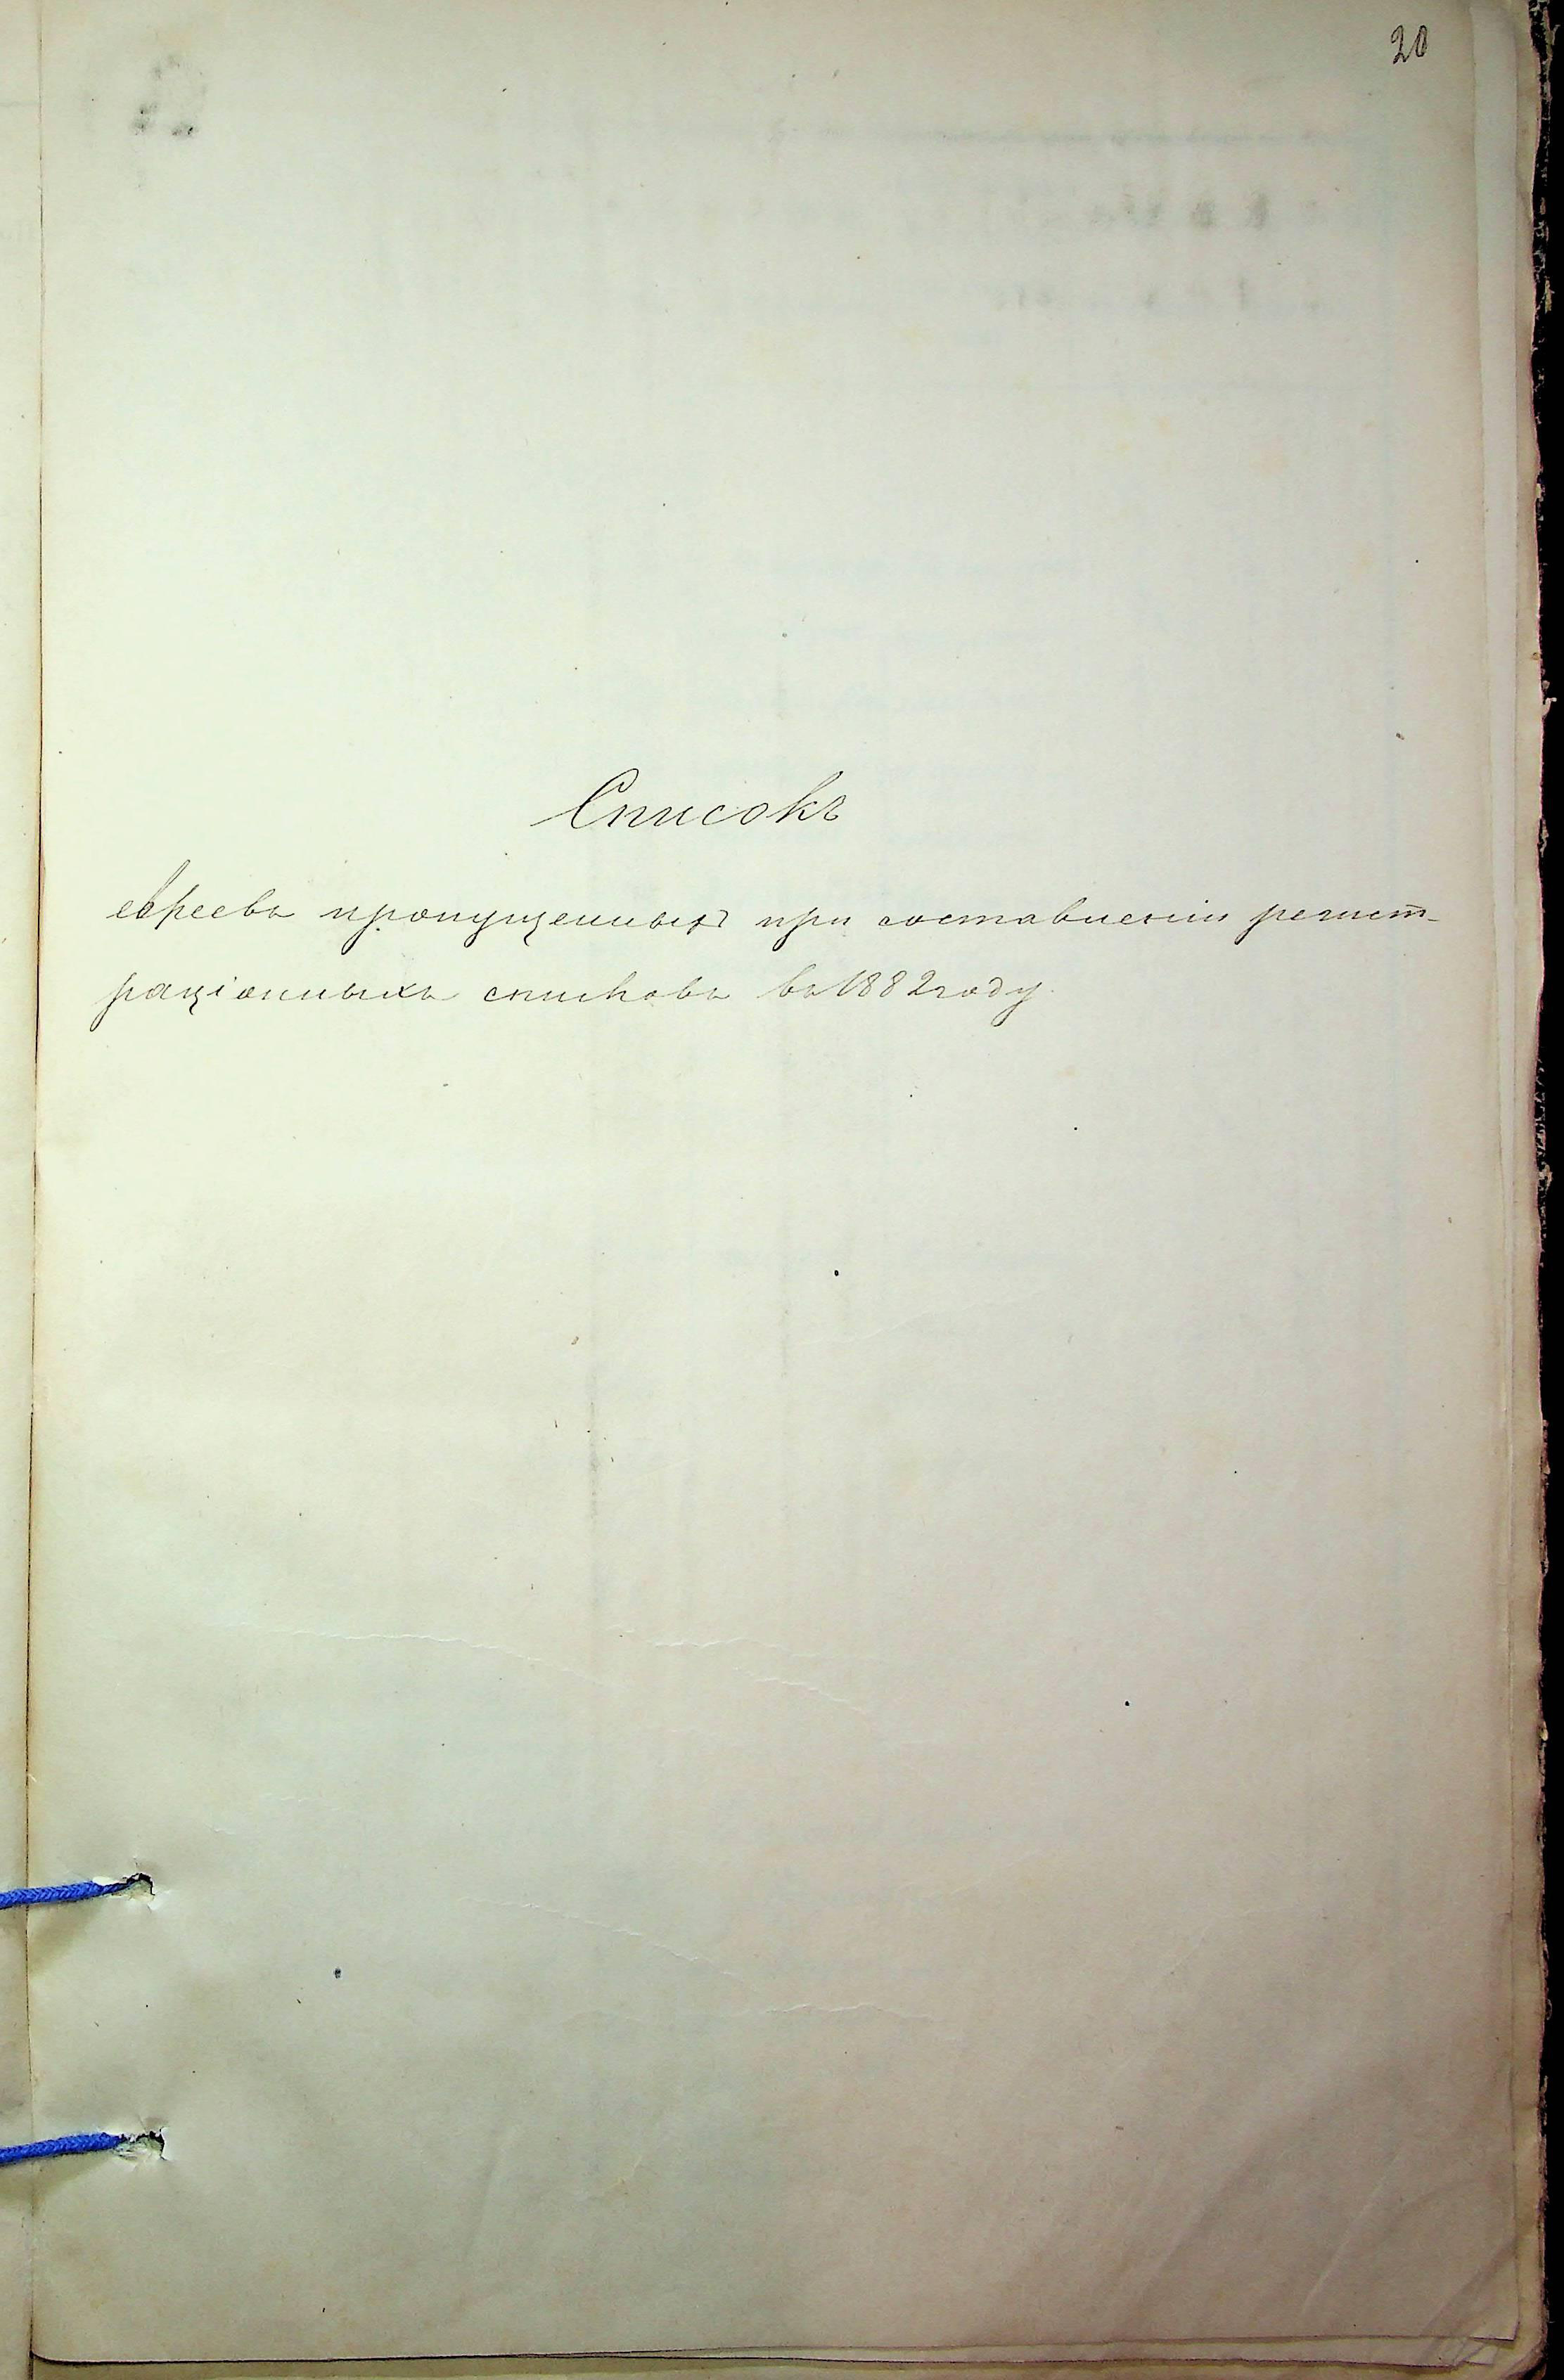 20
Списокъ
евреевъ пропущенныхъ при составленіи регист-
раціонныхъ списковъ въ 1882 году.